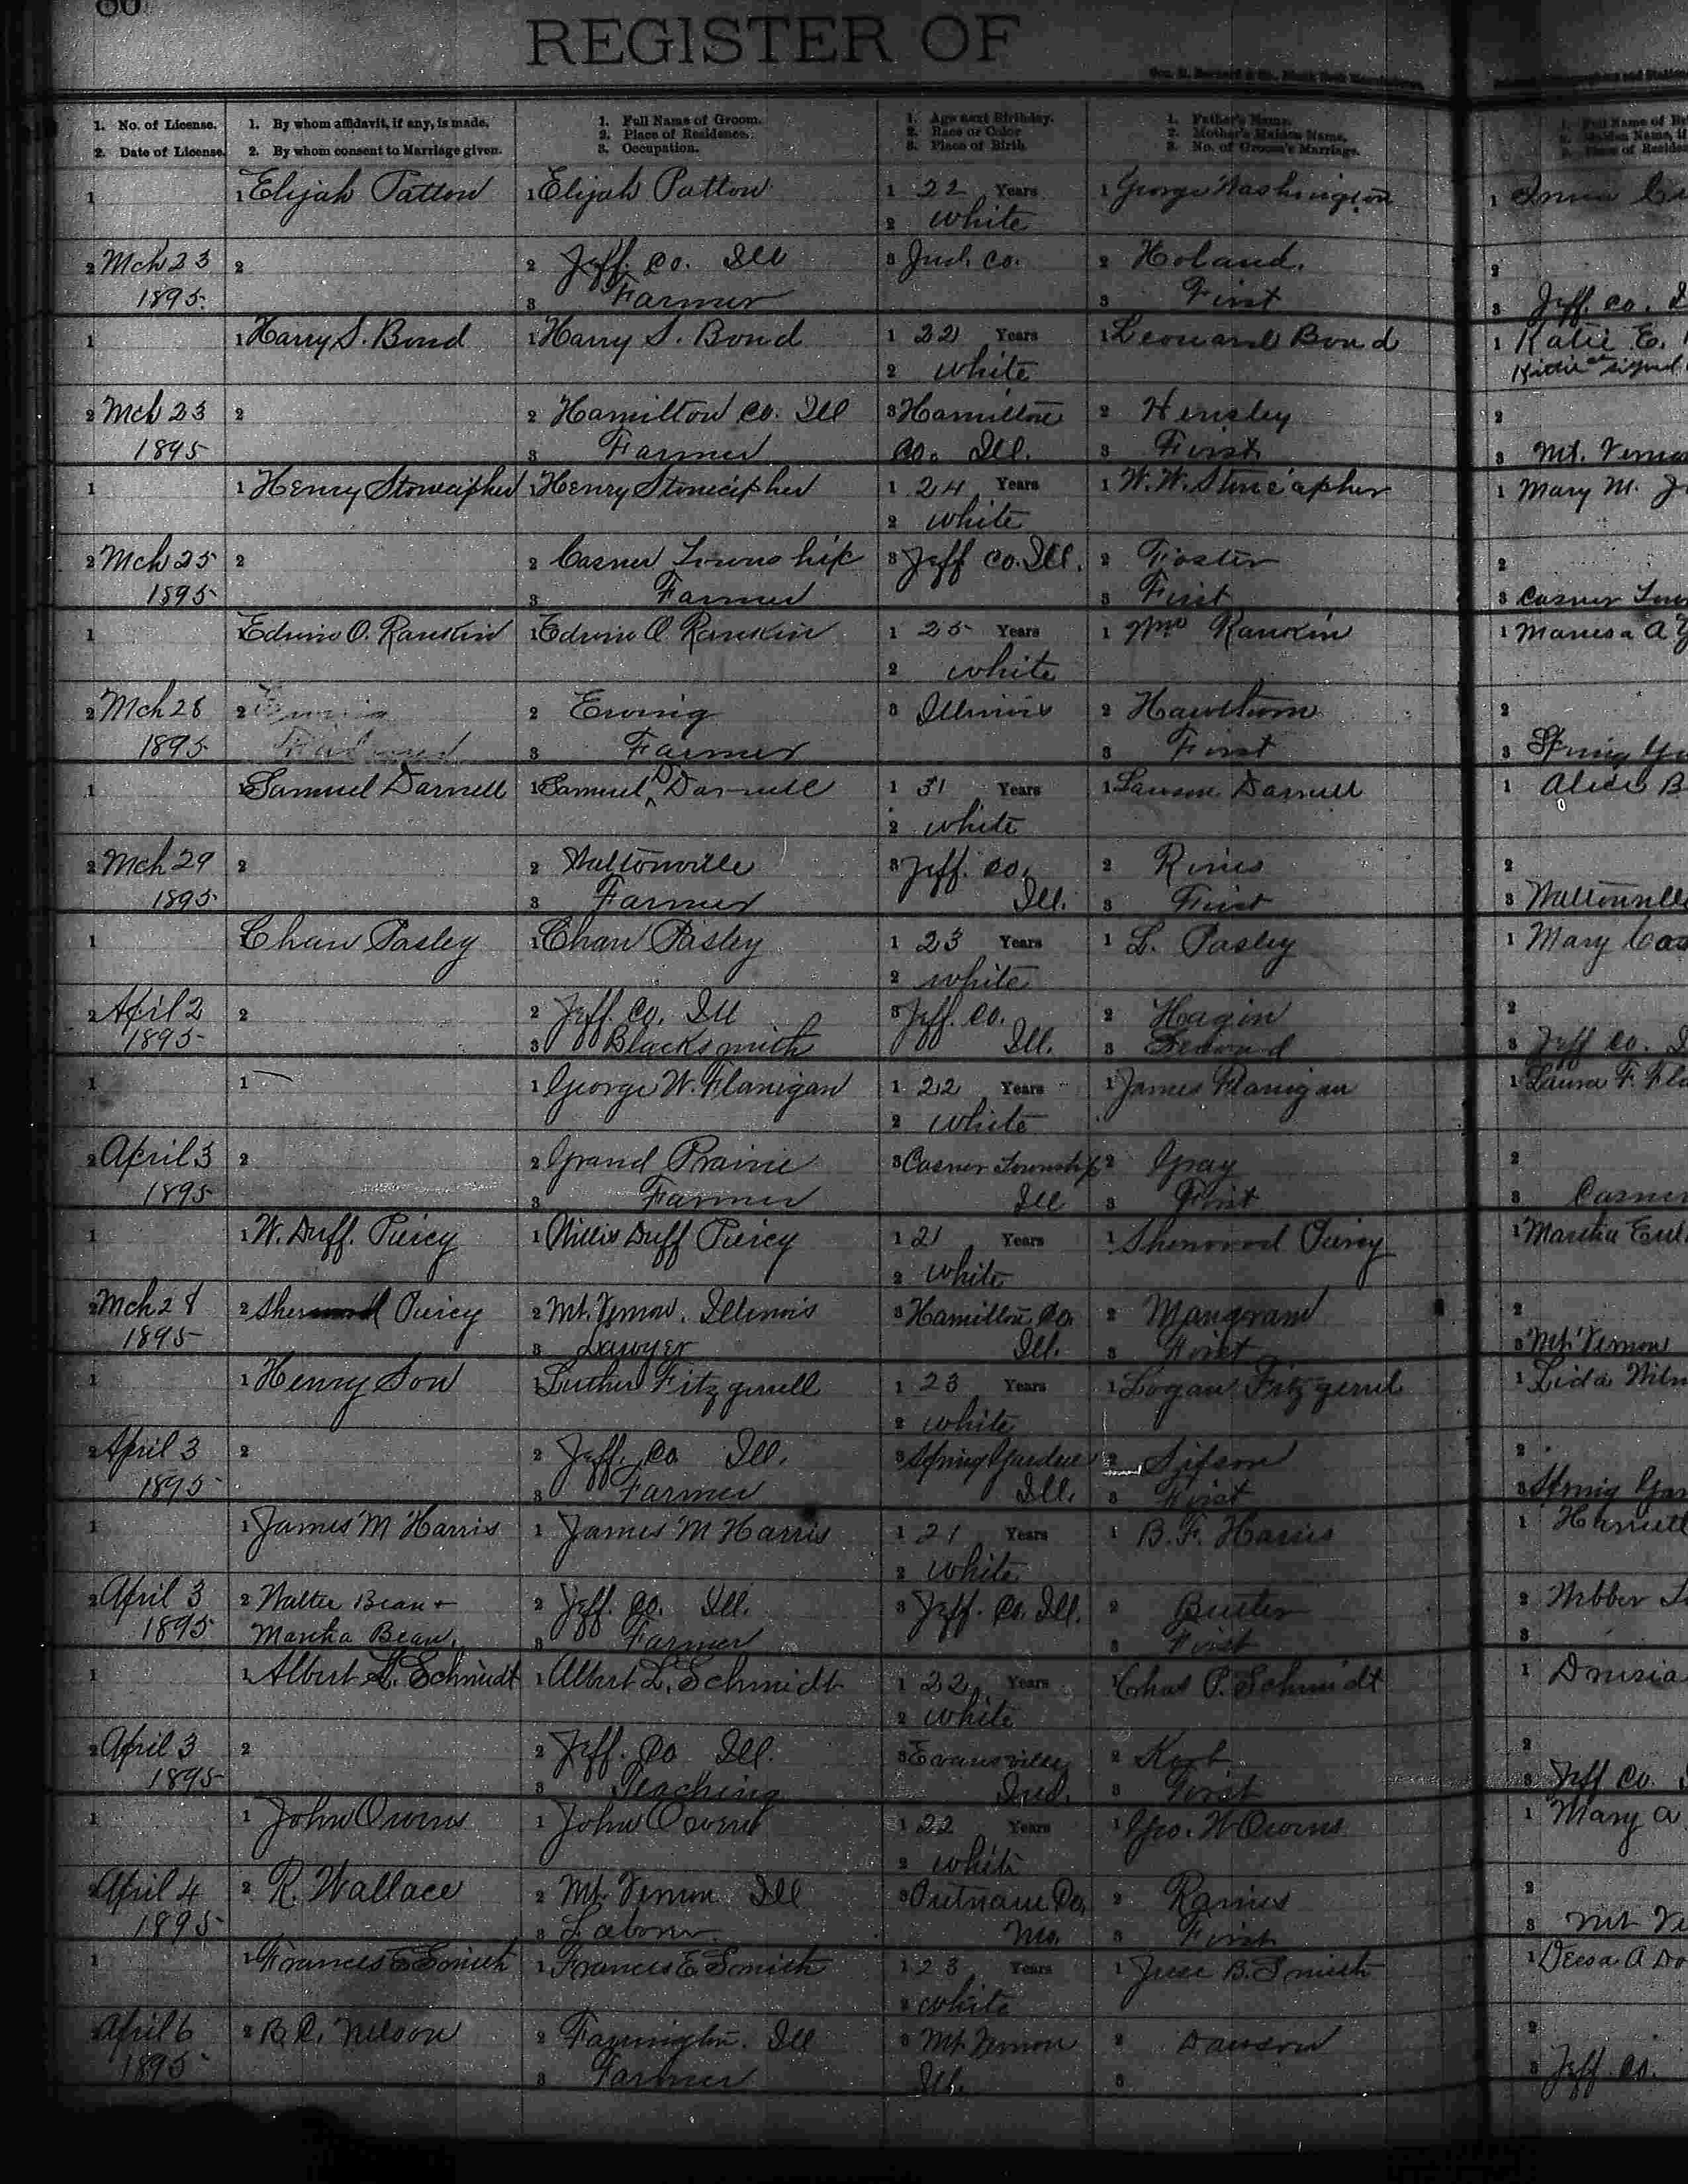 80
REGISTER OF
1. No. of License.
2. Date of License.
1. By whom affidavit, if any, is made.
2. By whom consent to Marriage given.
1. Full Name of Groom.
2. Place of Residence.
3. Occupation.
1. Age next Birthday.
2. Race or Color
3. Place of Birth
1. Father's Name.
2. Mother's Maiden Name.
3. No. of Groom's Marriage.
1 1 Elijah Patton 1 Elijah Patton 1 22 Years 1 George Washington 1
2 white
2 Mch 23 2 2 Jeff. Co. Ill 3 Co. 2 Holand. 2
1895. 3 Farmer 3 First 3 Jeff. Co.
1 1 Harry S. Bond 1 Harry S. Bond 1 22 Years 1 Leonard Bond 1 Katie E.
2 white signed
2 Mch 23 2 2 Hamilton Co. Ill 3 Hamilton 2 Hensley 2
1895 3 Farmer Co. Ill. 3 First 3 Mt. Vernon
1 1 Henry Stonecipher 1 Henry Stonecipher 1 24 Years 1 W. W. Stonecipher 1 Mary M.
2 white
2 Mch 25 2 2 Casner Township 3 Jeff Co. Ill. 2 Foster 2
1895 3 Farmer 3 First 3 Casner
1 Edwin O. Rankin 1 Edwin O. Rankin 1 25 Years 1 Wm Rankin 1 A
2 white
2 Mch 28 2 2 Ewing 3 Illinois 2 Hawthorn 2
1895 3 Farmer 3 First 3 Spring
1 1 Samuel Darnell 1 Samuel D Darnell 1 31 Years 1 Lawson Darnell 1 Alice B
2 white
2 Mch 29 2 2 Waltonville 3 Jeff. Co. 2 Rines 2
1895 3 Farmer Ill. 3 First 3 Waltonville
1 Chan Pasley 1 Chan Pasley 1 23 Years 1 L. Pasley 1 Mary
2 white
2 April 2 2 2 Jeff. Co. Ill 3 Jeff. Co. 2 Hagin 2
1895 3 Blacksmith Ill. 3 Second 3 Jeff Co.
1 1 1 George W. Flanigan 1 22 Years 1 James Flanigan 1 Laura F.
2 white
2 April 3 2 2 Grand Prairie 3 Casner Township 2 Gray 2
1895 3 Farmer Ill 3 First 3 Casner
1 1 W. Duff. Piercy 1 Willis Duff Piercy 1 21 Years 1 Sherwood Piercy 1 Martha
2 white
2 Mch 28 2 Sherwood Piercy 2 Mt. Vernon. Illinois 3 Hamilton Co. 2 2
1895 3 Lawyer Ill. 3 First 3 Mt. Vernon
1 1 Henry Son 1 Luther Fitzgerrell 1 23 Years 1 Logan Fitzgerrel 1 Lida
2 white
2 April 3 2 2 Jeff. Co Ill. 3 Spring Garden 2 2
1895 3 Farmer Ill. 3 First 3 Spring
1 1 James M Harris 1 James M Harris 1 21 Years 1 B. F. Harris 1
2 white
2 April 3 2 Walter Bean + 2 Jeff. Co. Ill. 3 Jeff. Co. Ill. 2 2 Webber
1895 Martha Bean. 3 Farmer 3 First 3
1 1 Albert L. Schmidt 1 Albert L. Schmidt 1 22 Years 1 Chas P. Schmidt 1
2 white
2 April 3 2 2 Jeff. Co Ill. 3 Evansville 2 2
1895 3 Teaching Ind. 3 First 3 Jeff Co.
1 1 John Owens 1 John Owens 1 22 Years 1 Geo. W Owens 1 Mary A
2 white
2 April 4 2 R. Wallace 2 Mt. Vernon Ill 3 Putnam Co. 2 2
1895 3 Laborer Mo. 3 First 3 Mt
1 1 Frances E Smith 1 Frances E Smith 1 23 Years 1 Jesse B. Smith 1
2 white
2 April 6 2 B. C. Nelson 2 Farmington. Ill 3 Mt. Vernon 2 Dawson 2
1895 3 Farmer Ill. 3 3 Jeff. Co.